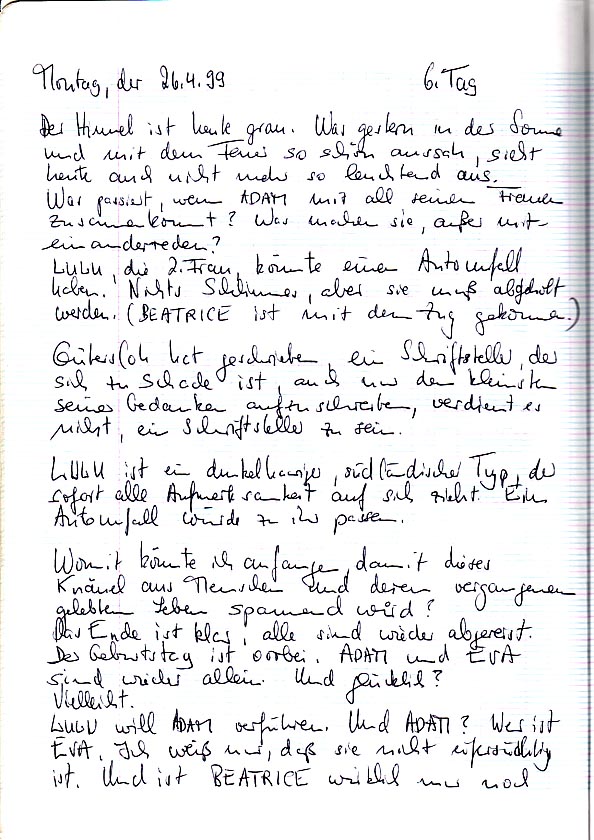 Montag, der 26.4.99 6. Tag
Der Himmel ist heute grau. Was gestern in der Sonne
und mit dem so schön aussah, sieht
heute auch nicht mehr so leuchtend aus.
Was passiert, wenn ADAM mit all seinen Frauen
zusammenkommt? Was machen sie, außer mit-
einanderreden?
LULU, die 2. Frau, könnte einen Autounfall
haben. Nichts Schlimmes, aber sie muß abgeholt
werden. (BEATRICE ist mit dem Zug gekommen.)
Gütersloh hat geschrieben, ein Schriftsteller, der
sich zu schade ist, auch nur den kleinsten
seiner Gedanken aufzuschreiben, verdient es
nicht, ein Schriftsteller zu sein.
LULU ist ein dunkelhaariger, südländischer Typ, der
sofort alle Aufmerksamkeit auf sich zieht. Ein
Autounfall würde zu ihr passen.
Womit könnte ich anfangen, damit dieses
Knäuel aus Menschen und deren vergangenen
gelebten Leben spannend wird?
Das Ende ist klar, alle sind wieder abgereist.
Der Geburtstag ist vorbei. ADAM und EVA
sind wieder allein. Und glücklich?
Vielleicht.
LULU will ADAM verführen. Und ADAM? Wer ist
EVA. Ich weiß nur, daß sie nicht eifersüchtig
ist. Und ist BEATRICE wirklich nur noch